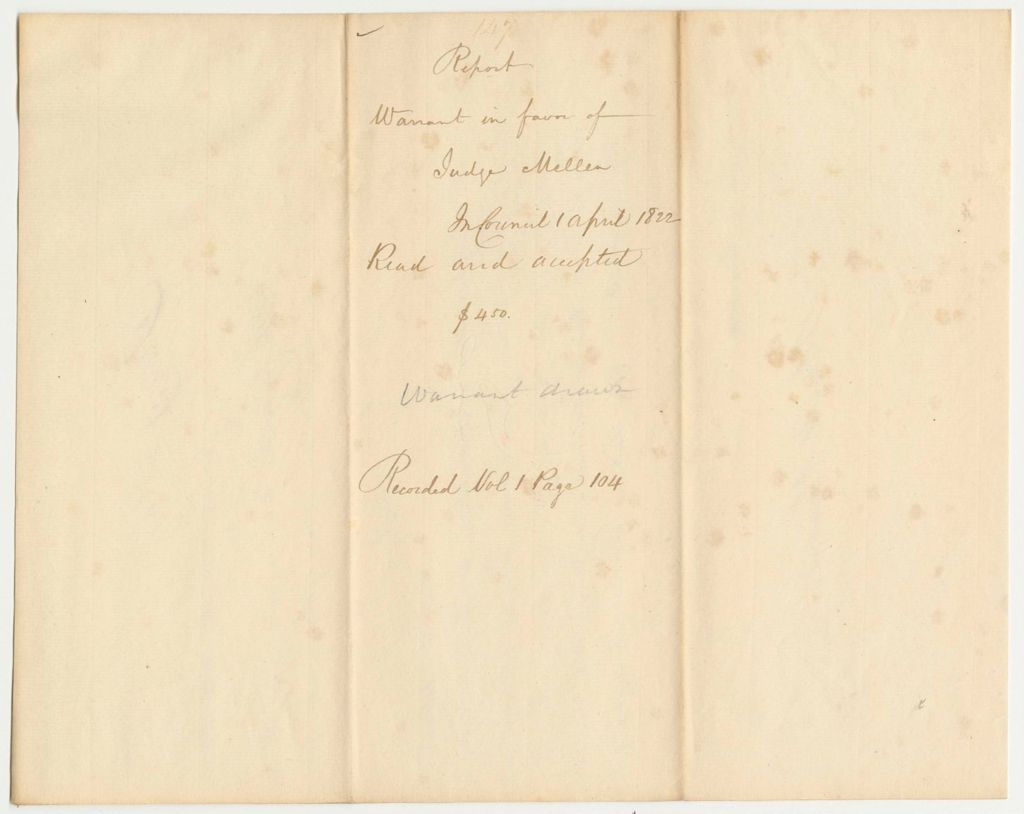 147
Report
Warrant in favor of
Judge Mellen
In Council 1 April 1822
Read and accepted
$450.
Warrant drawn
Recorded Vol 1 Page 104